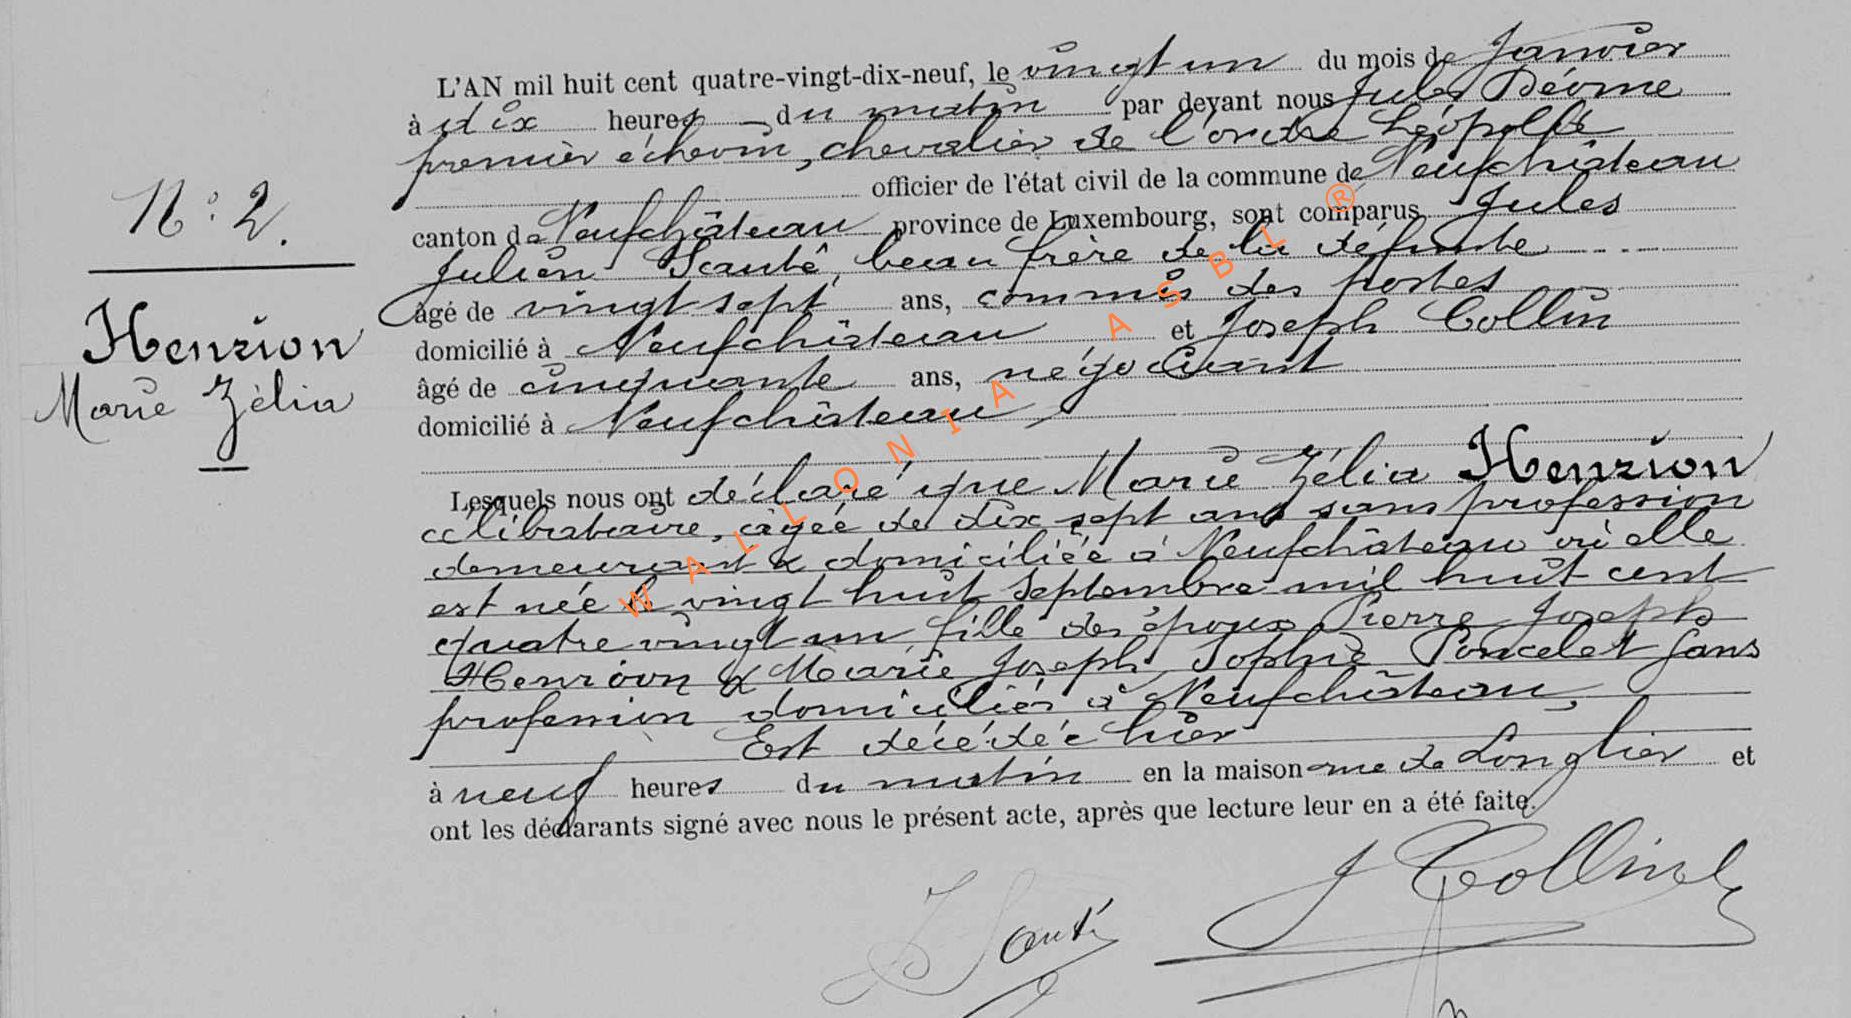 L'AN mil huit cent quatre-vingt-dix-neuf, le vingt un du mois de Janvier
à dix heures du matin par devant nous Jules Déome
premier échevin, chevalier de l'ordre Léopold
officier de l'état civil de la commune de Neufchâteau
canton de Neufchâteau province de Luxembourg, sont comparus Jules
Julien Santé, beau frère de la défunte
âgé de vingt sept ans, commis des postes
domicilié à Neufchâteau et Joseph Collin
âgé de cinquante ans, négociant
domicilié à Neufchâteau
Lesquels nous ont déclaré que Marie Zélia Henrion
célibataire, âgée de dix sept ans sans profession
demeurant & domiciliée à Neufchâteau où elle
est née le vingt huit Septembre mil huit cent
quatre vingt un fille des époux Pierre Joseph
Henrion & Marie Joseph Sophie Poncelet sans
profession domiciliés à Neufchâteau,
Est décédée hier
à neuf heures du matin en la maison rue de Longlier et
ont les déclarants signé avec nous le présent acte, après que lecture leur en a été faite.
N° 2.
Henrion
Marie Zélia
WALLONIA ASBL ®
J Santé
J Collin